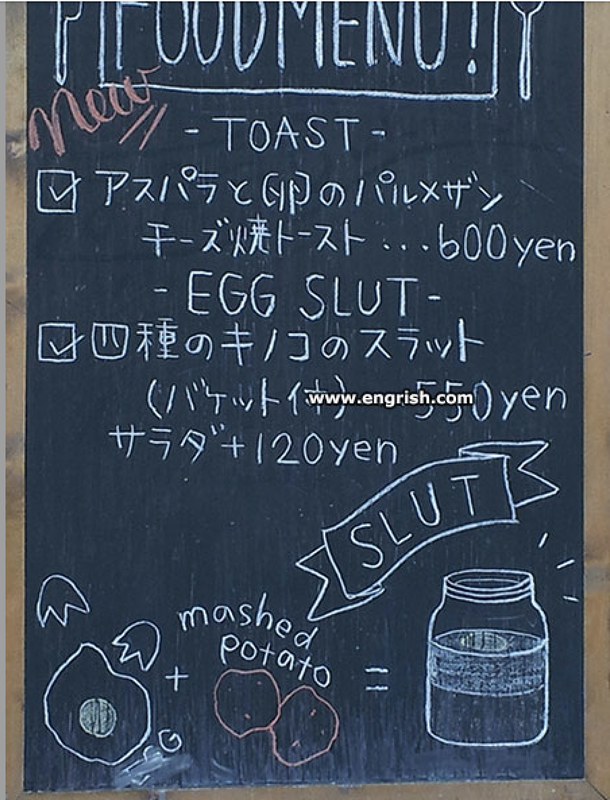 FOOD MENU!
new
- TOAST -
アスパラと卵のパルメザン
チーズ焼トースト ... 600yen
- EGG SLUT -
四種のキノコのスラット
(バケット付) 550yen
サラダ+120yen
www.engrish.com
SLUT
mashed
potato
+ =